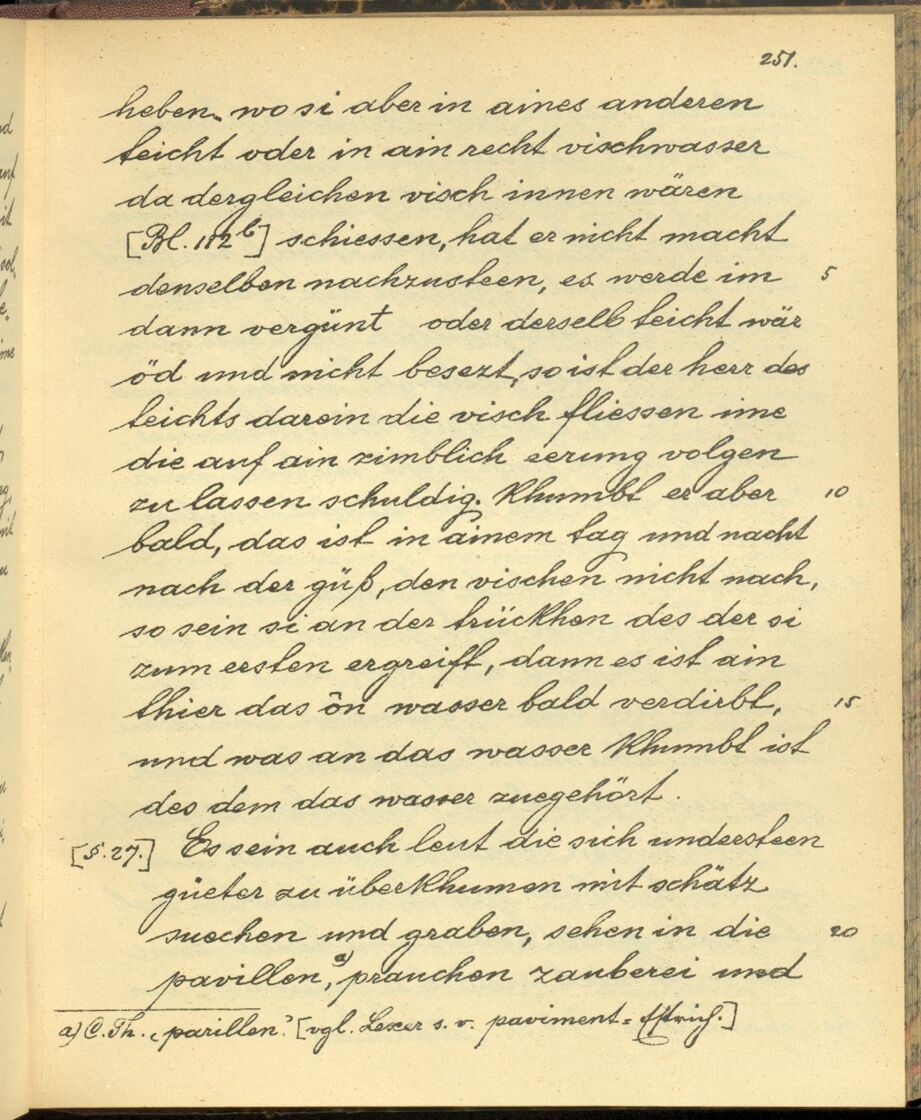 251.
heben. wo si aber in aines anderen
teicht oder in ain recht vischwasser
da dergleichen visch innen wären
[Bl. 112b] schiessen, hat er nicht macht
denselben nachzusteen, es werde im 5
dann vergünt oder derselb teicht wär
öd und nicht besezt, so ist der herr des
teichts darein die visch fliessen ime
die auf ain zimblich eerung volgen
zu lassen schuldig. Khumbt er aber 10
bald, das ist in ainem tag und nacht
nach der güß, den vischen nicht nach,
so sein si an der trückhen des der si
zum ersten ergreift, dann es ist ain
thier das ôn wasser bald verdirbt, 15
und was an das wasser khumbt ist
des dem das wasser zuegehört.
[§. 27.] Es sein auch leut die sich understeen
güeter zu überkhumen mit schätz
suechen und graben, sehen in die 20
pavillen,a) prauchen zauberei und
a) C. Th. „parillen“? [vgl. Lexer s. v. paviment = Estrich.]